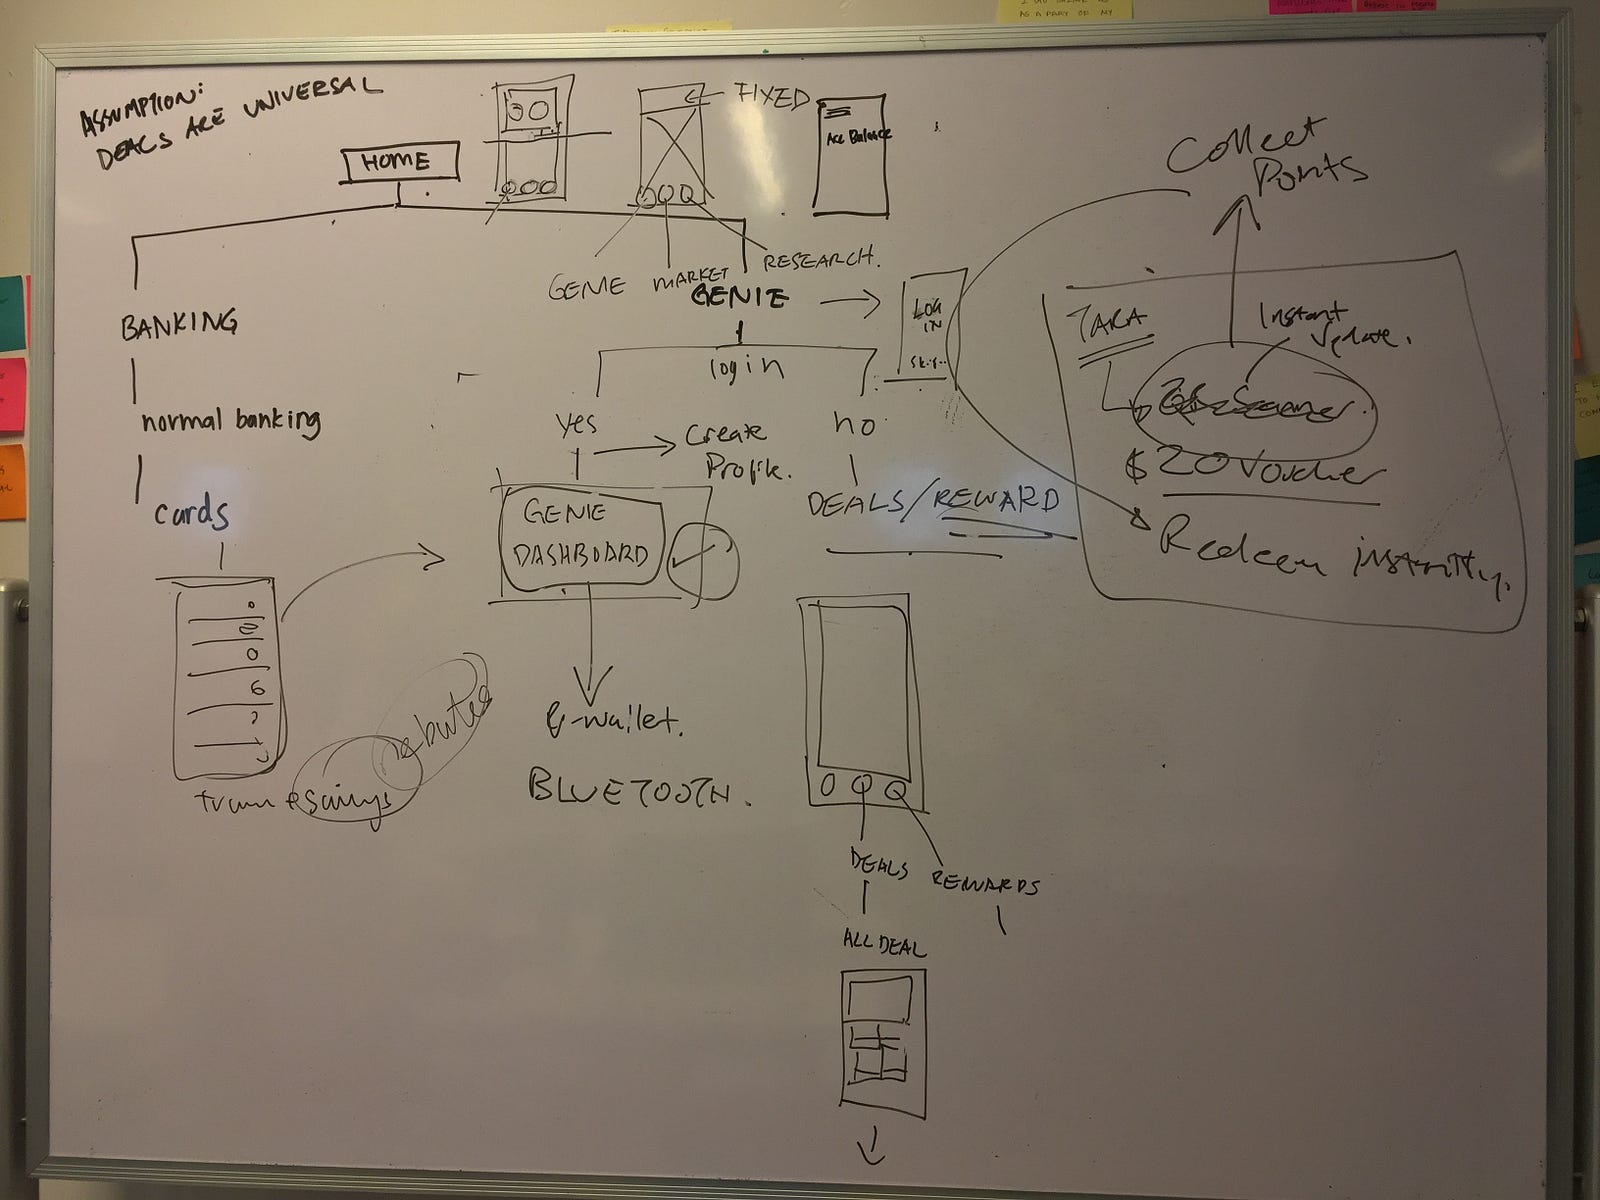 I DID
AS A PART OF MY
ASSUMPTION:
DEALS ARE UNIVERSAL
HOME
FIXED
Acc Balance
GENIE
MARKET
RESEARCH.
BANKING
normal banking
cards
GENIE
login
yes
no
Create
Profile.
LOG
IN
Skip..
GENIE
DASHBOARD
DEALS/REWARD
E-wallet.
BLUETOOTH.
rebates
DEALS
REWARDS
ALL DEAL
Collect
Points
TARA
Instant
Update.
$20 Voucher
Redeem instantly.